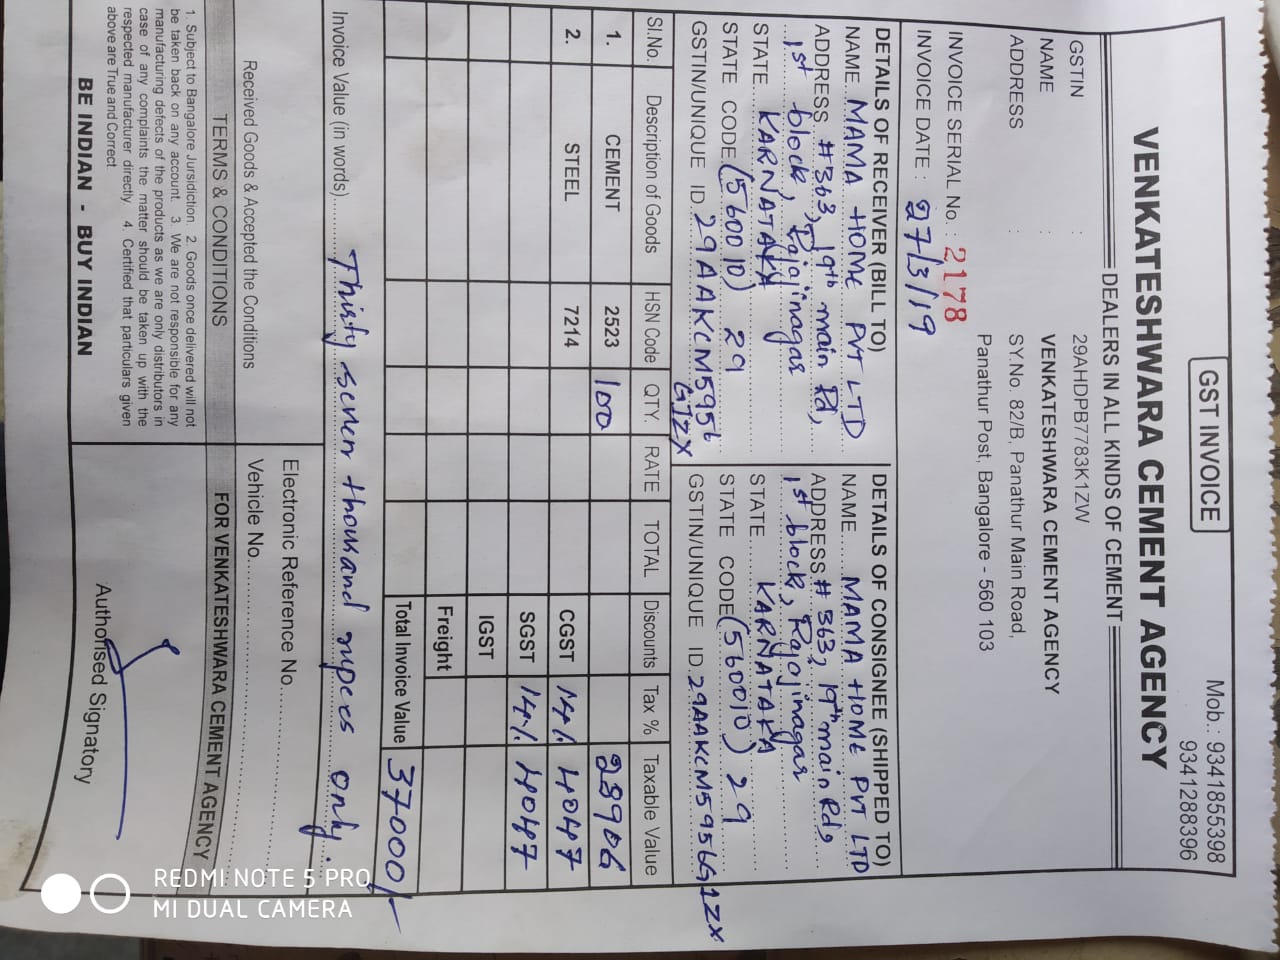 GST INVOICE
Mob.: 9341855398
9341288396
VENKATESHWARA CEMENT AGENCY
DEALERS IN ALL KINDS OF CEMENT
GSTIN : 29AHDPB7783K1ZW
NAME : VENKATESHWARA CEMENT AGENCY
ADDRESS : SY.No. 82/B, Panathur Main Road,
Panathur Post, Bangalore - 560 103
INVOICE SERIAL No. : 2178
INVOICE DATE : 27/3/19
DETAILS OF RECEIVER (BILL TO)
NAME MAMA HOME PVT LTD
ADDRESS #363, 19th main Rd,
1st block, Rajajinagar
STATE KARNATAKA
STATE CODE (560010) 29
GSTIN/UNIQUE ID 29AAKCM5956
G1ZX
DETAILS OF CONSIGNEE (SHIPPED TO)
NAME MAMA HOME PVT LTD
ADDRESS #363, 19th main Rd,
1st block, Rajajinagar
STATE KARNATAKA
STATE CODE (560010) 29
GSTIN/UNIQUE ID 29AAKCM5956G1ZX
Sl.No. Description of Goods HSN Code QTY. RATE TOTAL Discounts Tax % Taxable Value
1. CEMENT 2523 100 28906
2. STEEL 7214 CGST 14% 4047
SGST 14% 4047
IGST
Freight
Total Invoice Value 37000/-
Invoice Value (in words) Thirty seven thousand rupees only.
Received Goods & Accepted the Conditions
Electronic Reference No.
Vehicle No.
TERMS & CONDITIONS
1. Subject to Bangalore Jursidiction. 2. Goods once delivered will not
be taken back on any account. 3. We are not responsible for any
manufacturing defects of the products as we are only distributors in
case of any complaints the matter should be taken up with the
respected manufacturer directly. 4. Certified that particulars given
above are True and Correct
BE INDIAN - BUY INDIAN
FOR VENKATESHWARA CEMENT AGENCY
Authorised Signatory
REDMI NOTE 5 PRO
MI DUAL CAMERA